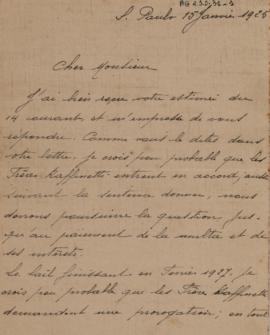 S. Paulo 15 Janvier 1925
Cher Monsieur
J'ai bien reçu votre estimée du
14 courant et m'empresse de vous
répondre. Comme vous le dites dans
votre lettre, je crois peu probable que les
Frères Raffinetti entrent en accord,
suivant la sentence donner, nous
devons poursuivre la question, jus-
qu'au paiement de la multe et de
ses interets.
Le bail finissant en Fevrier 1927. Je
crois peu probable que les Frère Raffinetti
demandent une prorogation; en tout